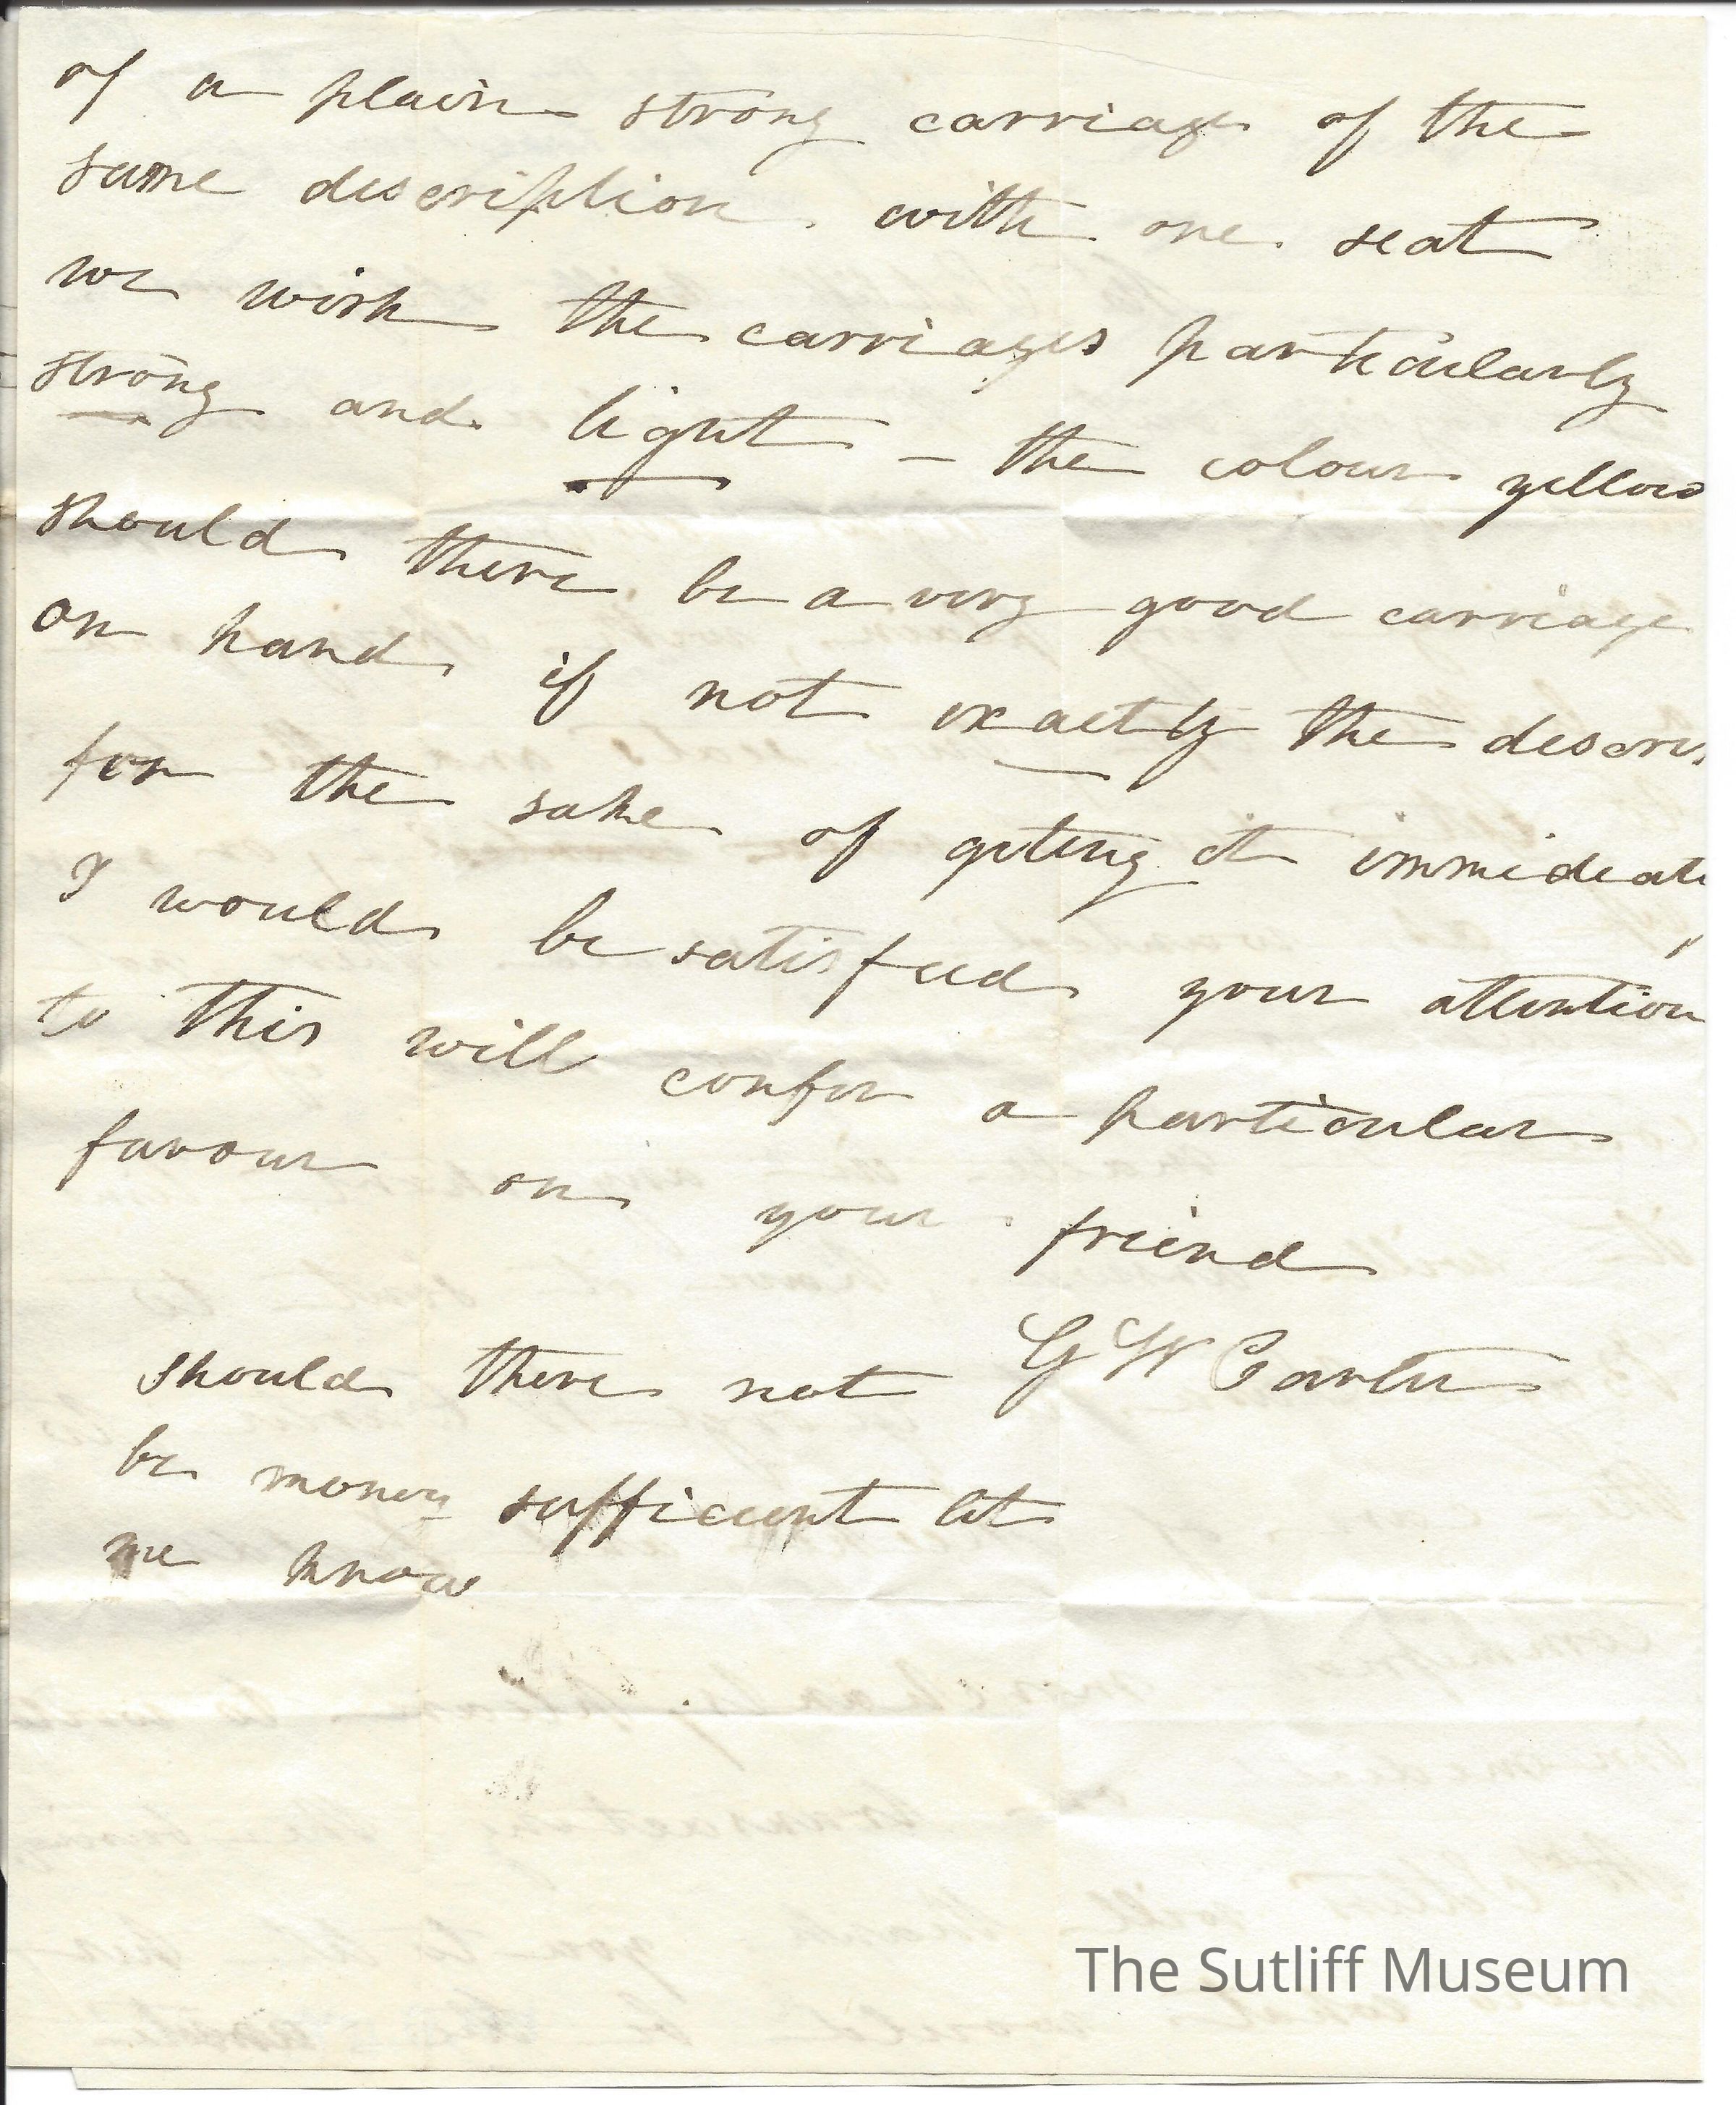 of a plain strong carriage of the
same description with one seat
we wish the carriages particularly
strong and light - the colour yellow
should there be a very good carriage
on hand if not exactly the descri
for the sake of geting it immideate
I would be satisfeed your attention
to this will confer a particular
favour on your friend
G W Carter
should there not
be money sufficient let
me know
The Sutliff Museum